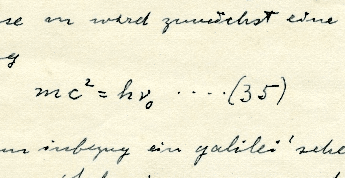 se m ward zunächst eine
g
mc² = hν₀ ·····(35)
in inbezug ein galilei'sche